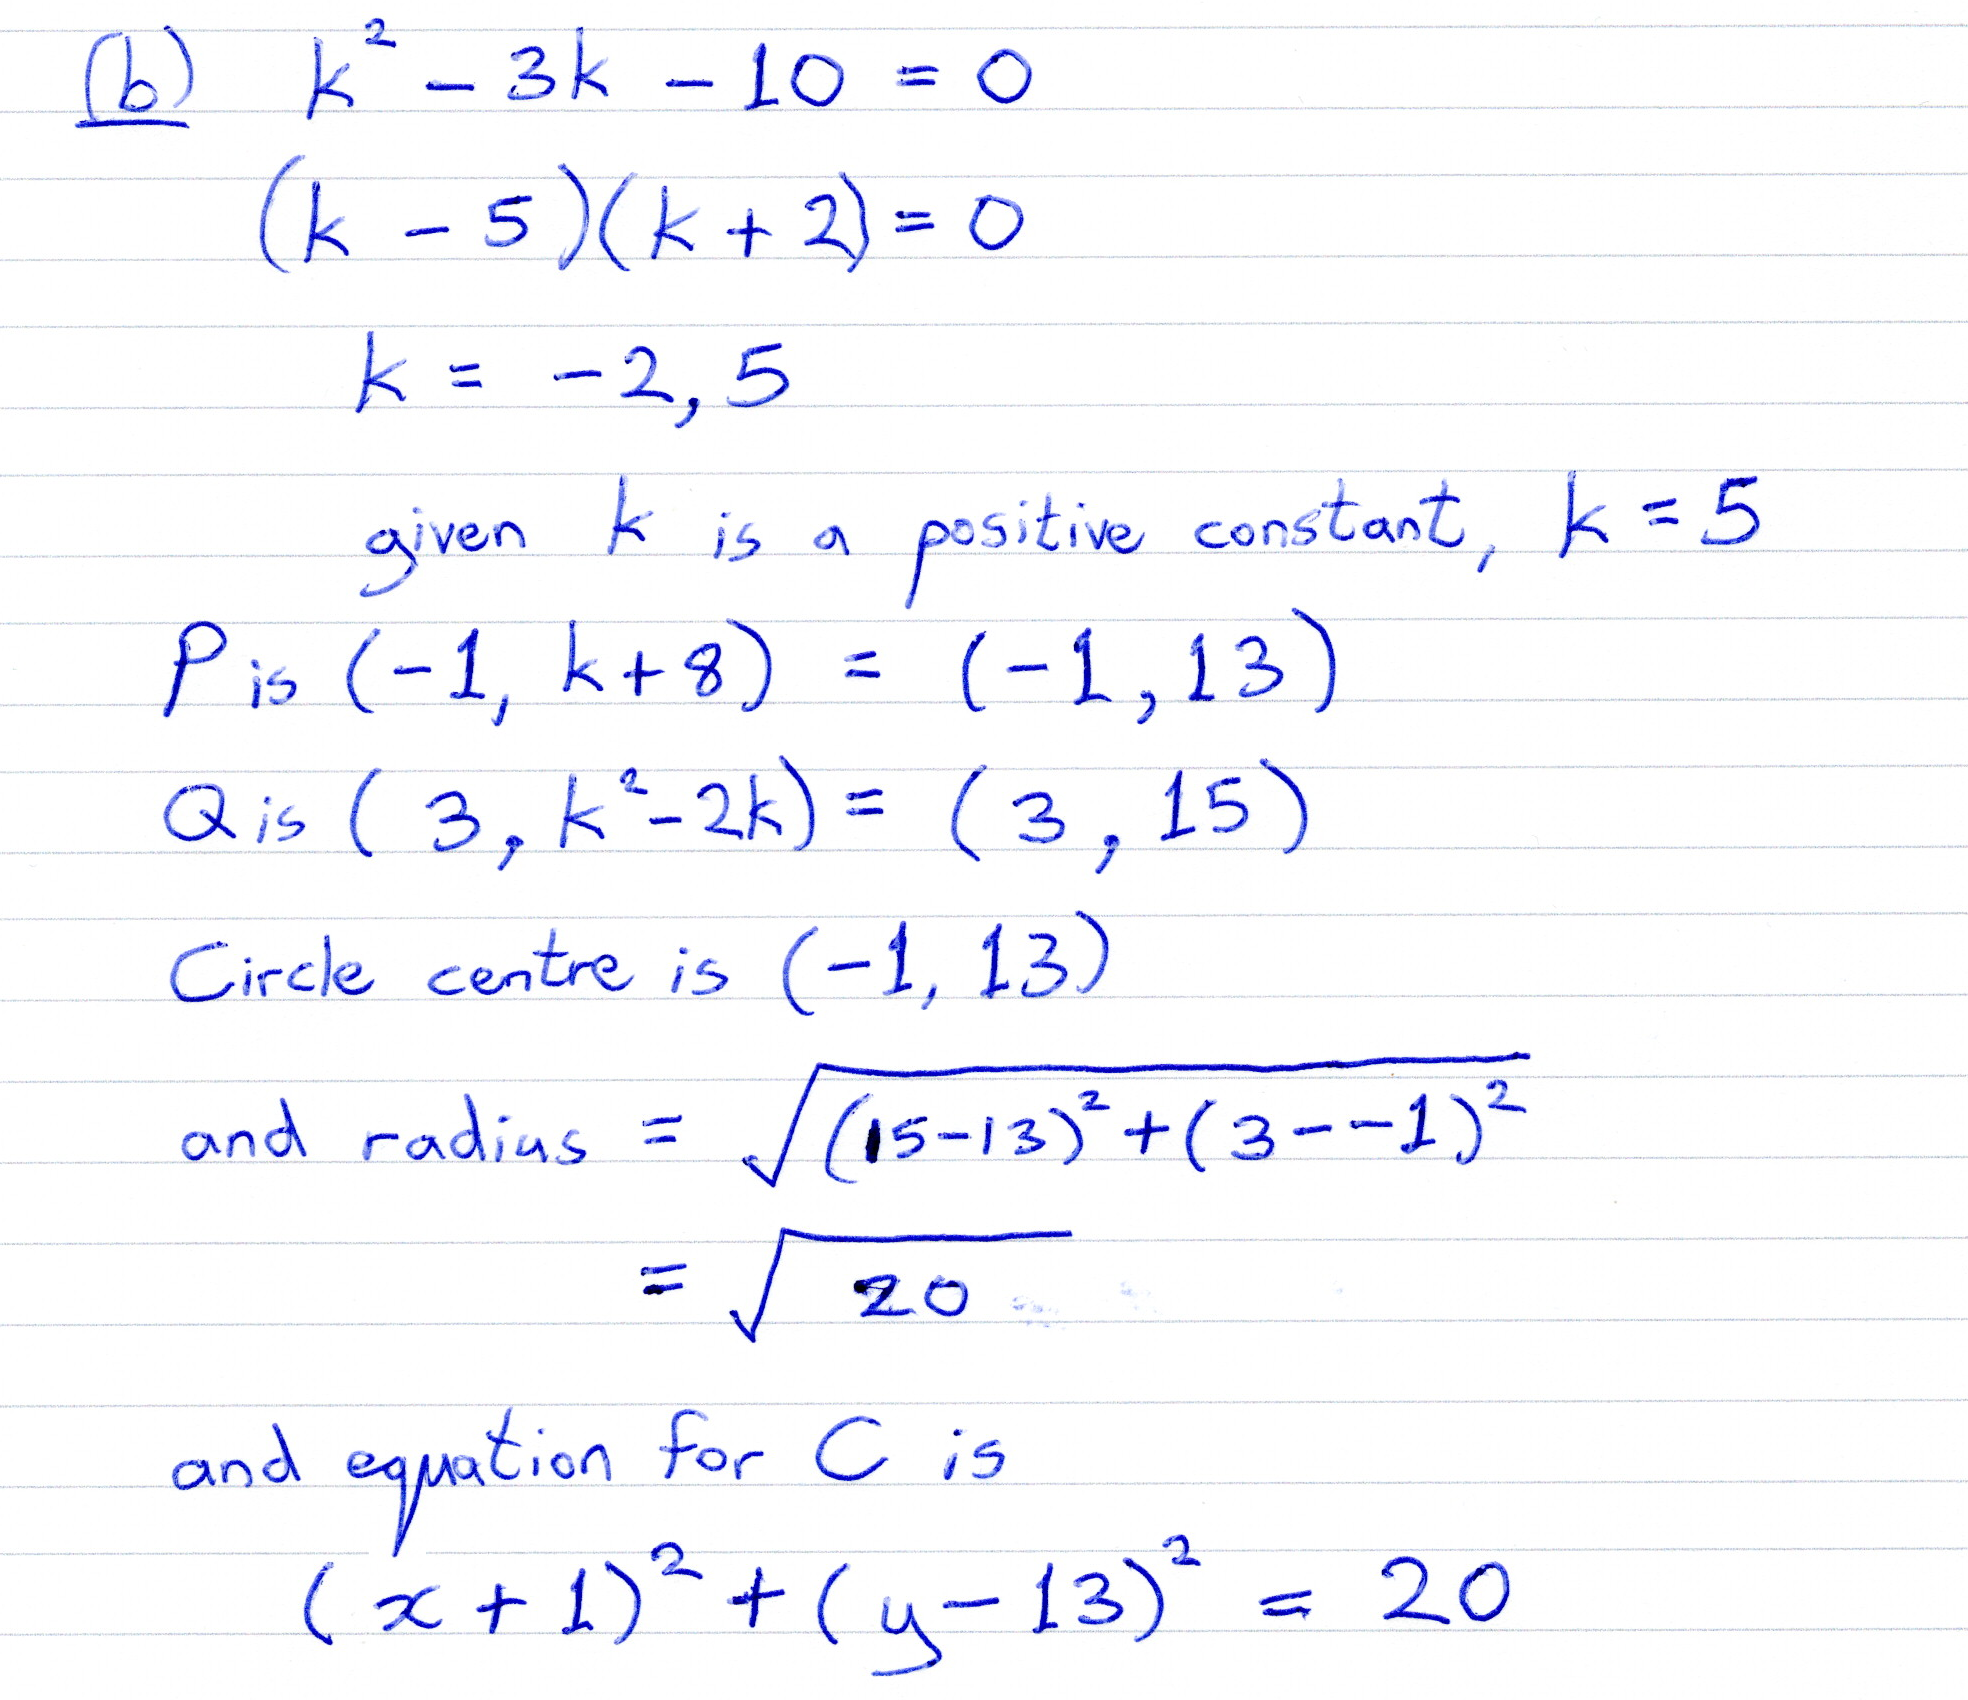 (b) k² - 3k - 10 = 0
(k - 5)(k + 2) = 0
k = -2, 5
given k is a positive constant, k = 5
P is (-1, k+8) = (-1, 13)
Q is (3, k²-2k) = (3, 15)
Circle centre is (-1, 13)
and radius = √((15-13)²+(3--1)²)
= √20
and equation for C is
(x + 1)² + (y - 13)² = 20